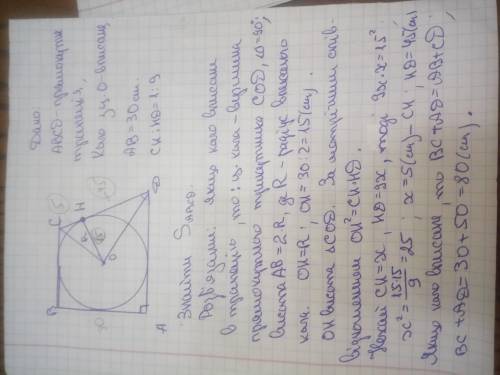 Дано:
ABCD - прямокутна
трапеція,
Коло з ц. O - вписане
AB = 30 см.
CH : HD = 1 : 9
Знайти S ABCD.
B
C
5
H
R
15
45
O
D
A
Розв'язання: якщо коло вписане
в трапецію, то: ц. кола - вершина
прямокутного трикутника COD, ∠O = 90°;
висота AB = 2R, де R - радіус вписаного
кола. OH = R; OH = 30 : 2 = 15 (см).
OH висота ΔCOD. За метричним спів-
відношенням OH² = CH · HD.
Нехай CH = x, HD = 9x, тоді 9x · x = 15²
x² = 15·15/9 = 25; x = 5 (см) - CH; HD = 45 (см)
Якщо коло вписане, то BC + AD = AB + CD;
BC + AD = 30 + 50 = 80 (см).